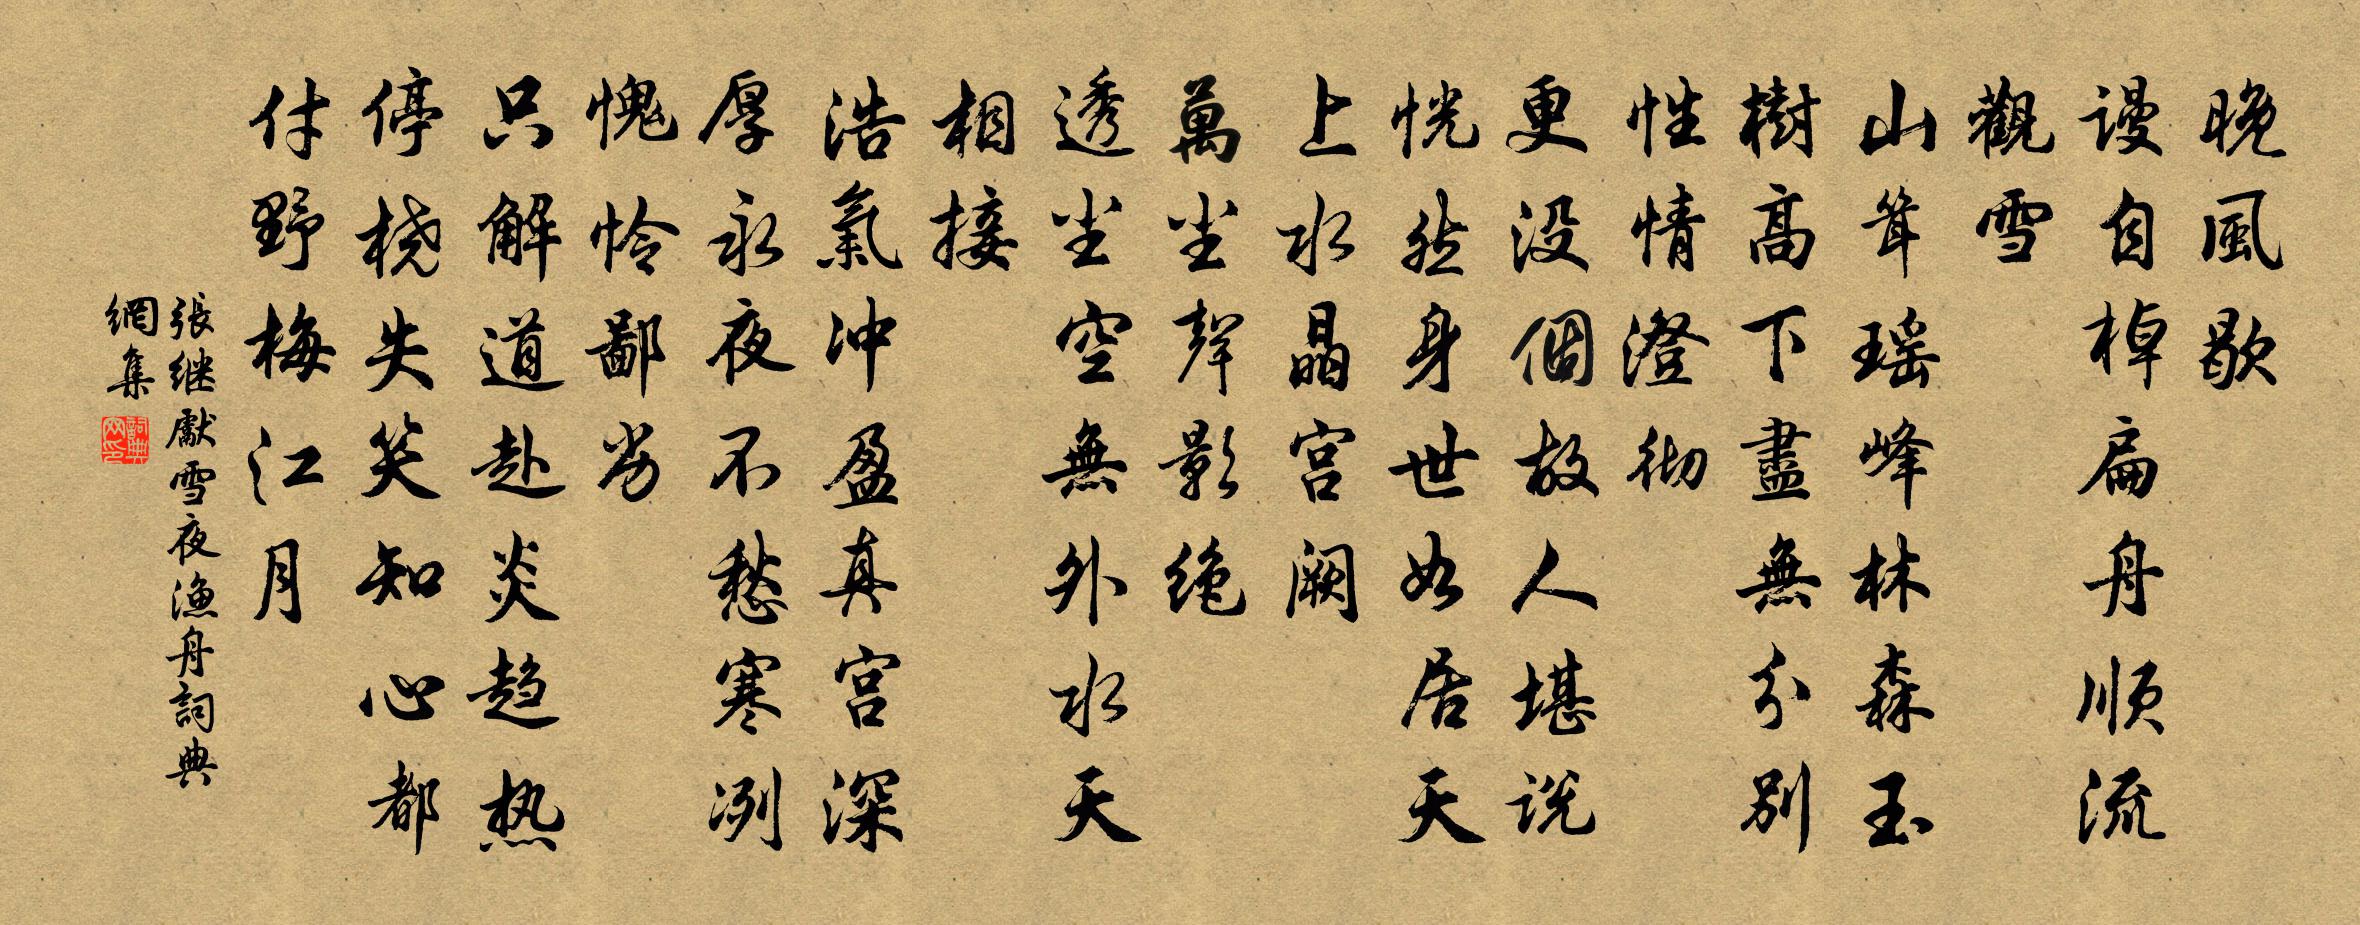 晚風歇
谩自棹扁舟順流
觀雪
山耸瑶峰林森玉
樹高下盡無分别
性情澄彻
更没個故人堪说
恍然身世如居天
上水晶宫阙
萬尘聲影绝
透尘空無外水天
相接
浩氣冲盈真宫深
厚永夜不愁寒冽
愧怜鄙劣
只解道赴炎趋热
停桡失笑知心都
付野梅江月
張继獻雪夜漁舟詞典
網集
詞典
网印